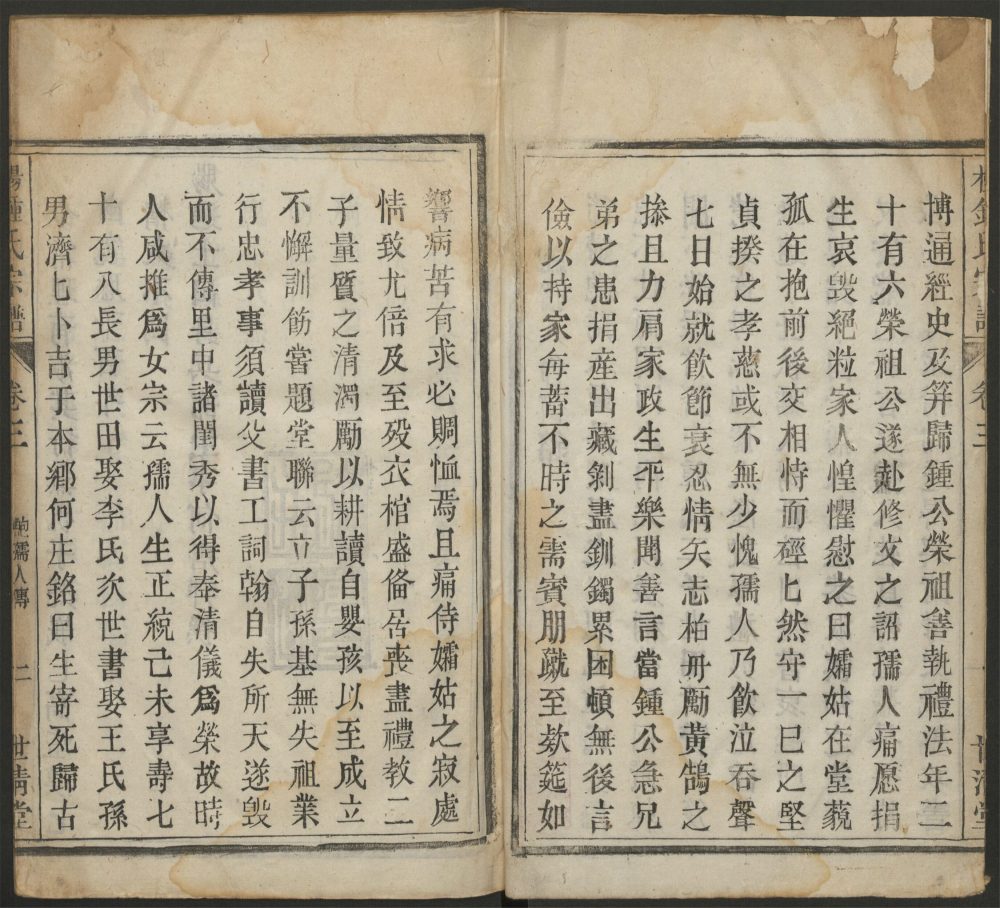 博通經史及筓歸鍾公榮祖善執禮法年二
十有六榮祖公遂赴修文之詔孺人痛愿捐
生哀毀絕粒家人惶懼慰之曰孀姑在堂藐
孤在抱前後交相恃而硜匕然守一巳之堅
貞揆之孝慈或不無少愧孺人乃飲泣吞聲
七日始就飲節哀忍情矢志柏舟勵黄鵠之
摻且力肩家政生平樂聞善言當鍾公急兄
弟之患捐産出藏剝盡釧鐲累困頓無後言
儉以持家每蓄不時之需賓朋蹴至欻筵如
響病苦有求必賙恤焉且痛侍孀姑之寂處
情致尤倍及至歿衣棺盛俻居喪盡禮教二
子量質之清濁勵以耕讀自嬰孩以至成立
不懈訓飭嘗題堂聯云立子孫基無失祖業
行忠孝事須讀父書工詞翰自失所天遂毀
而不傳里中諸閨秀以得奉清儀爲榮故時
人咸推爲女宗云孺人生正統己未享壽七
十有八長男世田娶李氏次世書娶王氏孫
男濟匕卜吉于本鄉何庄銘曰生寄死歸古
鍾氏宗譜 卷三 孺人傳 二 世清堂